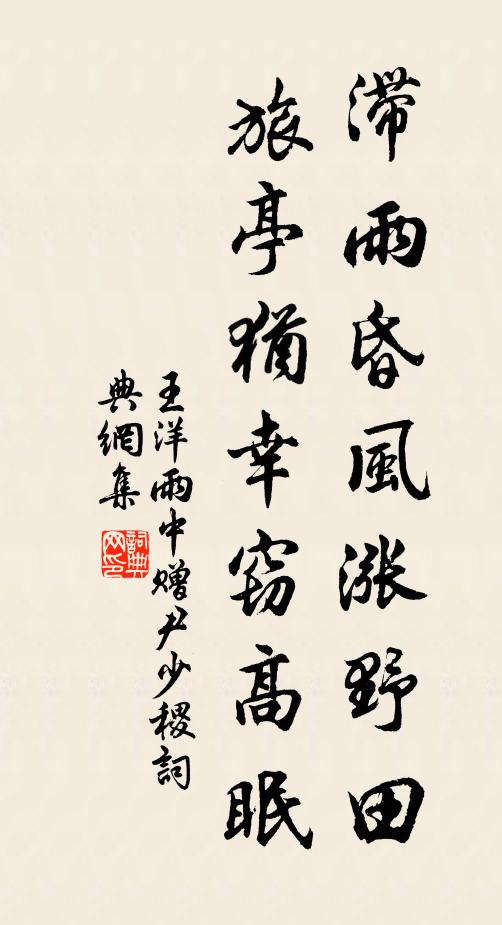 滯雨昏風漲野田
旅亭猶幸竊高眠
王洋雨中赠尹少稷詞
典網集
詞典
网印